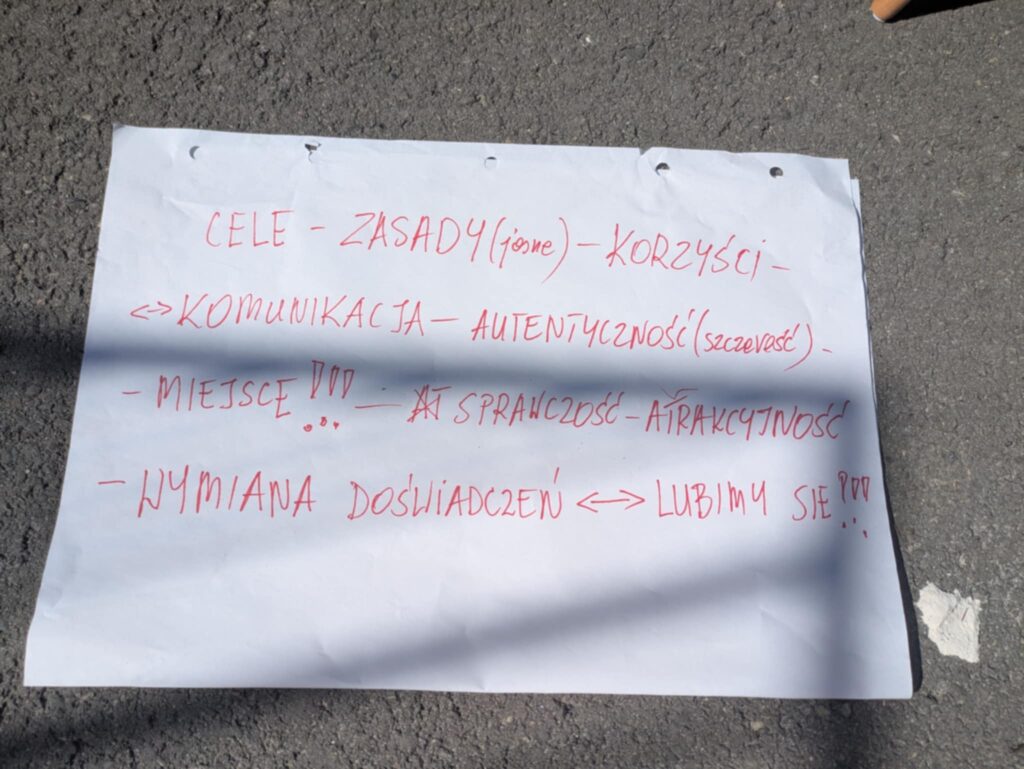 CELE - ZASADY (jasne) - KORZYŚCI -
<-> KOMUNIKACJA - AUTENTYCZNOŚĆ (szczerość) -
- MIEJSCE !!! - SPRAWCZOŚĆ - ATRAKCYJNOŚĆ
- WYMIANA DOŚWIADCZEŃ <-> LUBIMY SIĘ !!!